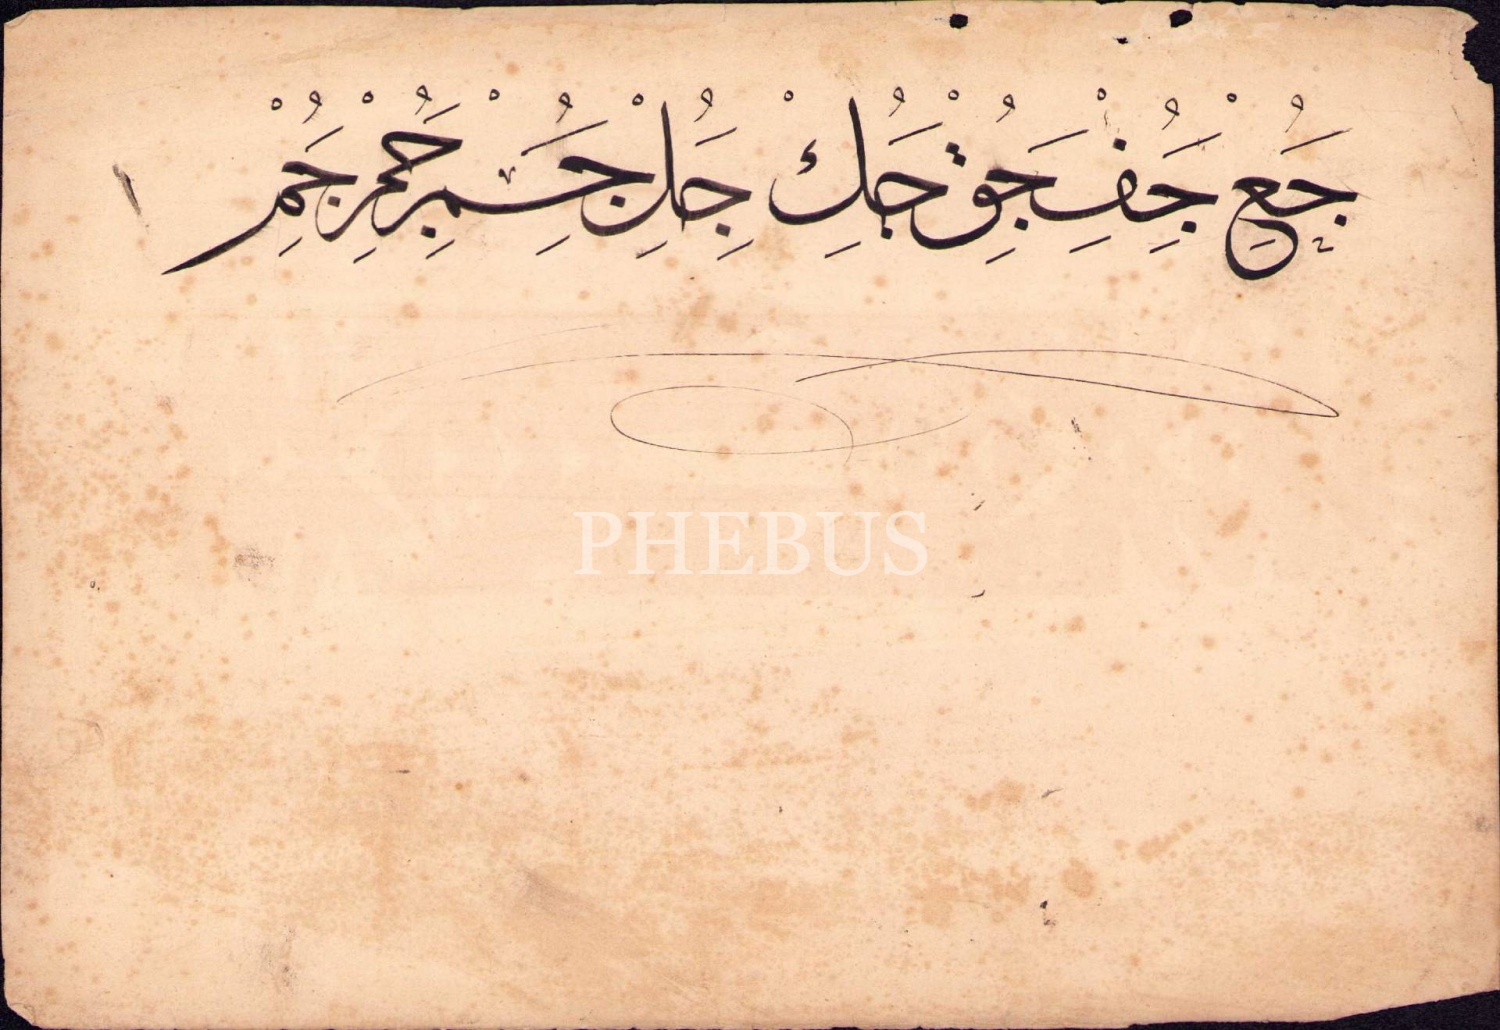 جع جف جق جك جل جم جم جم
PHEBUS